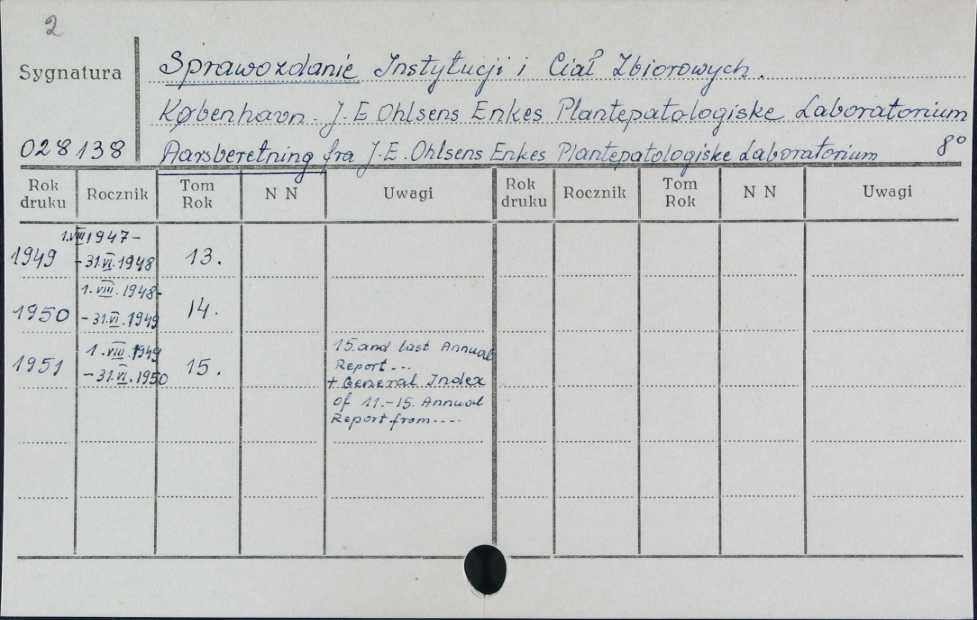 2
Sygnatura
Sprawozdanie Instytucji i Ciał Zbiorowych.
København. J. E Ohlsens Enkes Plantepatologiske Laboratorium
028138
Aarsberetning fra J.E. Ohlsens Enkes Plantepatologiske Laboratorium 8°
Rok druku Rocznik Tom Rok N N Uwagi Rok druku Rocznik Tom Rok N N Uwagi
1.VIII 1947-
1949 -31.VI.1948 13.
1.VIII.1948-
1950 -31.VI.1949 14.
1951 1.VIII.1949 15. 15. and last Annual
-31.VI.1950 Report...
+ General Index
of 11.-15. Annual
Report from....